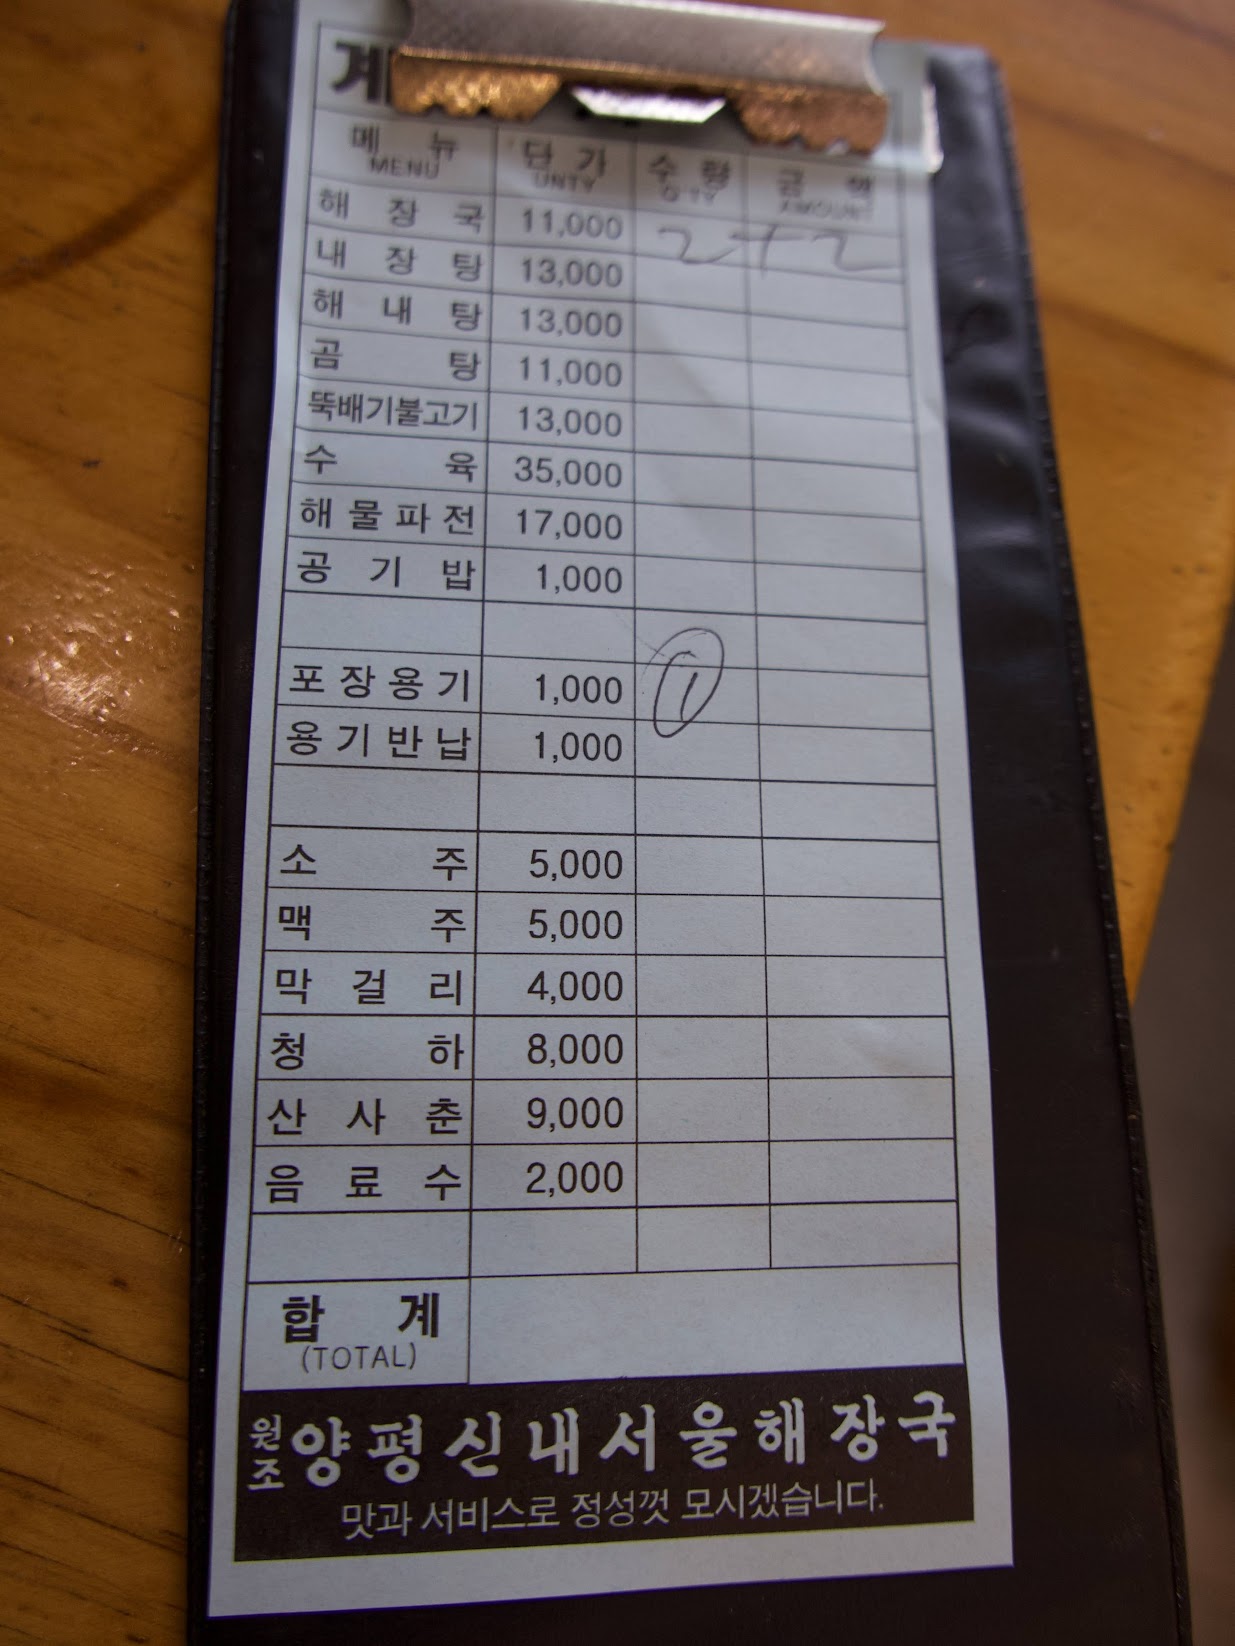 계
메 뉴 단 가 수 량 금 액
MENU UNTY Q'TY AMOUNT
해 장 국 11,000 2+2
내 장 탕 13,000
해 내 탕 13,000
곰 탕 11,000
뚝배기불고기 13,000
수 육 35,000
해물파전 17,000
공 기 밥 1,000
포장용기 1,000 ①
용기반납 1,000
소 주 5,000
맥 주 5,000
막 걸 리 4,000
청 하 8,000
산 사 춘 9,000
음 료 수 2,000
합 계
(TOTAL)
원조 양평신내서울해장국
맛과 서비스로 정성껏 모시겠습니다.